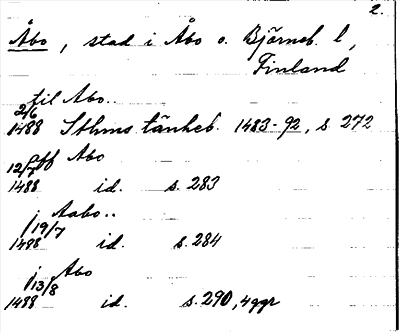 2.
Åbo, stad i Åbo o. Björneb. l,
Finland
til Abo..
2/6
1488 Sthms tänkeb. 1483-92, s 272
aff Abo
12/7
1488 id. s. 283
j Aabo..
19/7
1488 id. s. 284
j Abo
13/8
1488 id. s. 290, 4ggr